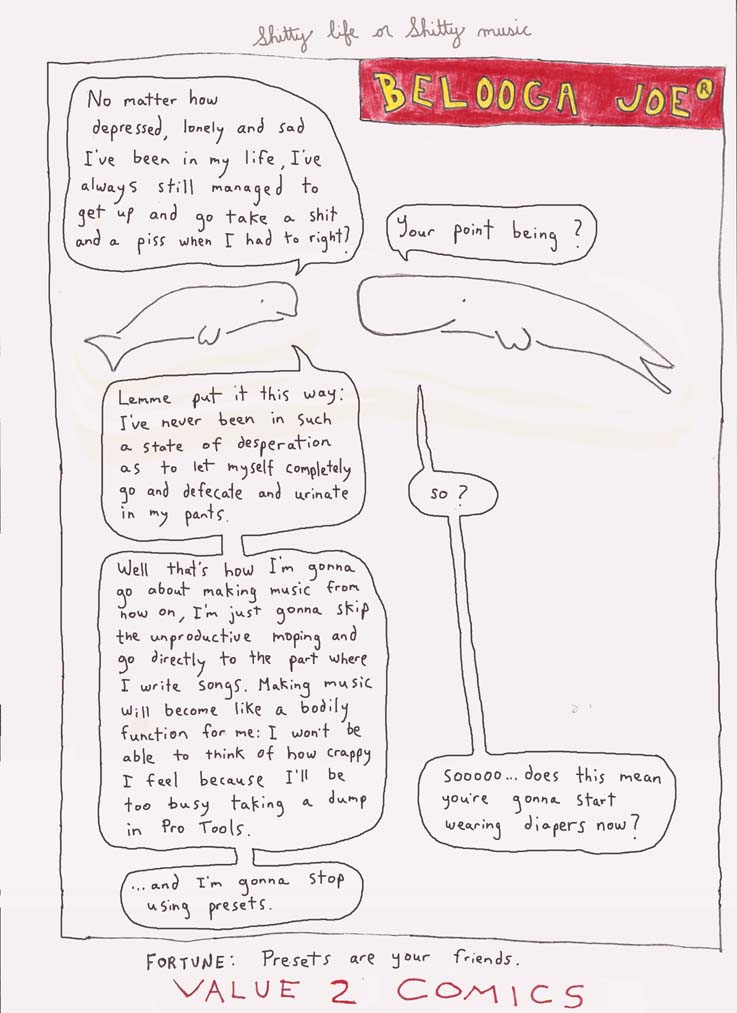 Shitty life or Shitty music
BELOOGA JOE®
No matter how
depressed, lonely and sad
I've been in my life, I've
always still managed to
get up and go take a shit
and a piss when I had to right?
Your point being?
Lemme put it this way:
I've never been in such
a state of desperation
as to let myself completely
go and defecate and urinate
in my pants.
so?
Well that's how I'm gonna
go about making music from
now on, I'm just gonna skip
the unproductive moping and
go directly to the part where
I write songs. Making music
will become like a bodily
function for me: I won't be
able to think of how crappy
I feel because I'll be
too busy taking a dump
in Pro Tools.
...and I'm gonna stop
using presets.
Sooooo... does this mean
you're gonna start
wearing diapers now?
FORTUNE: Presets are your friends.
VALUE 2 COMICS